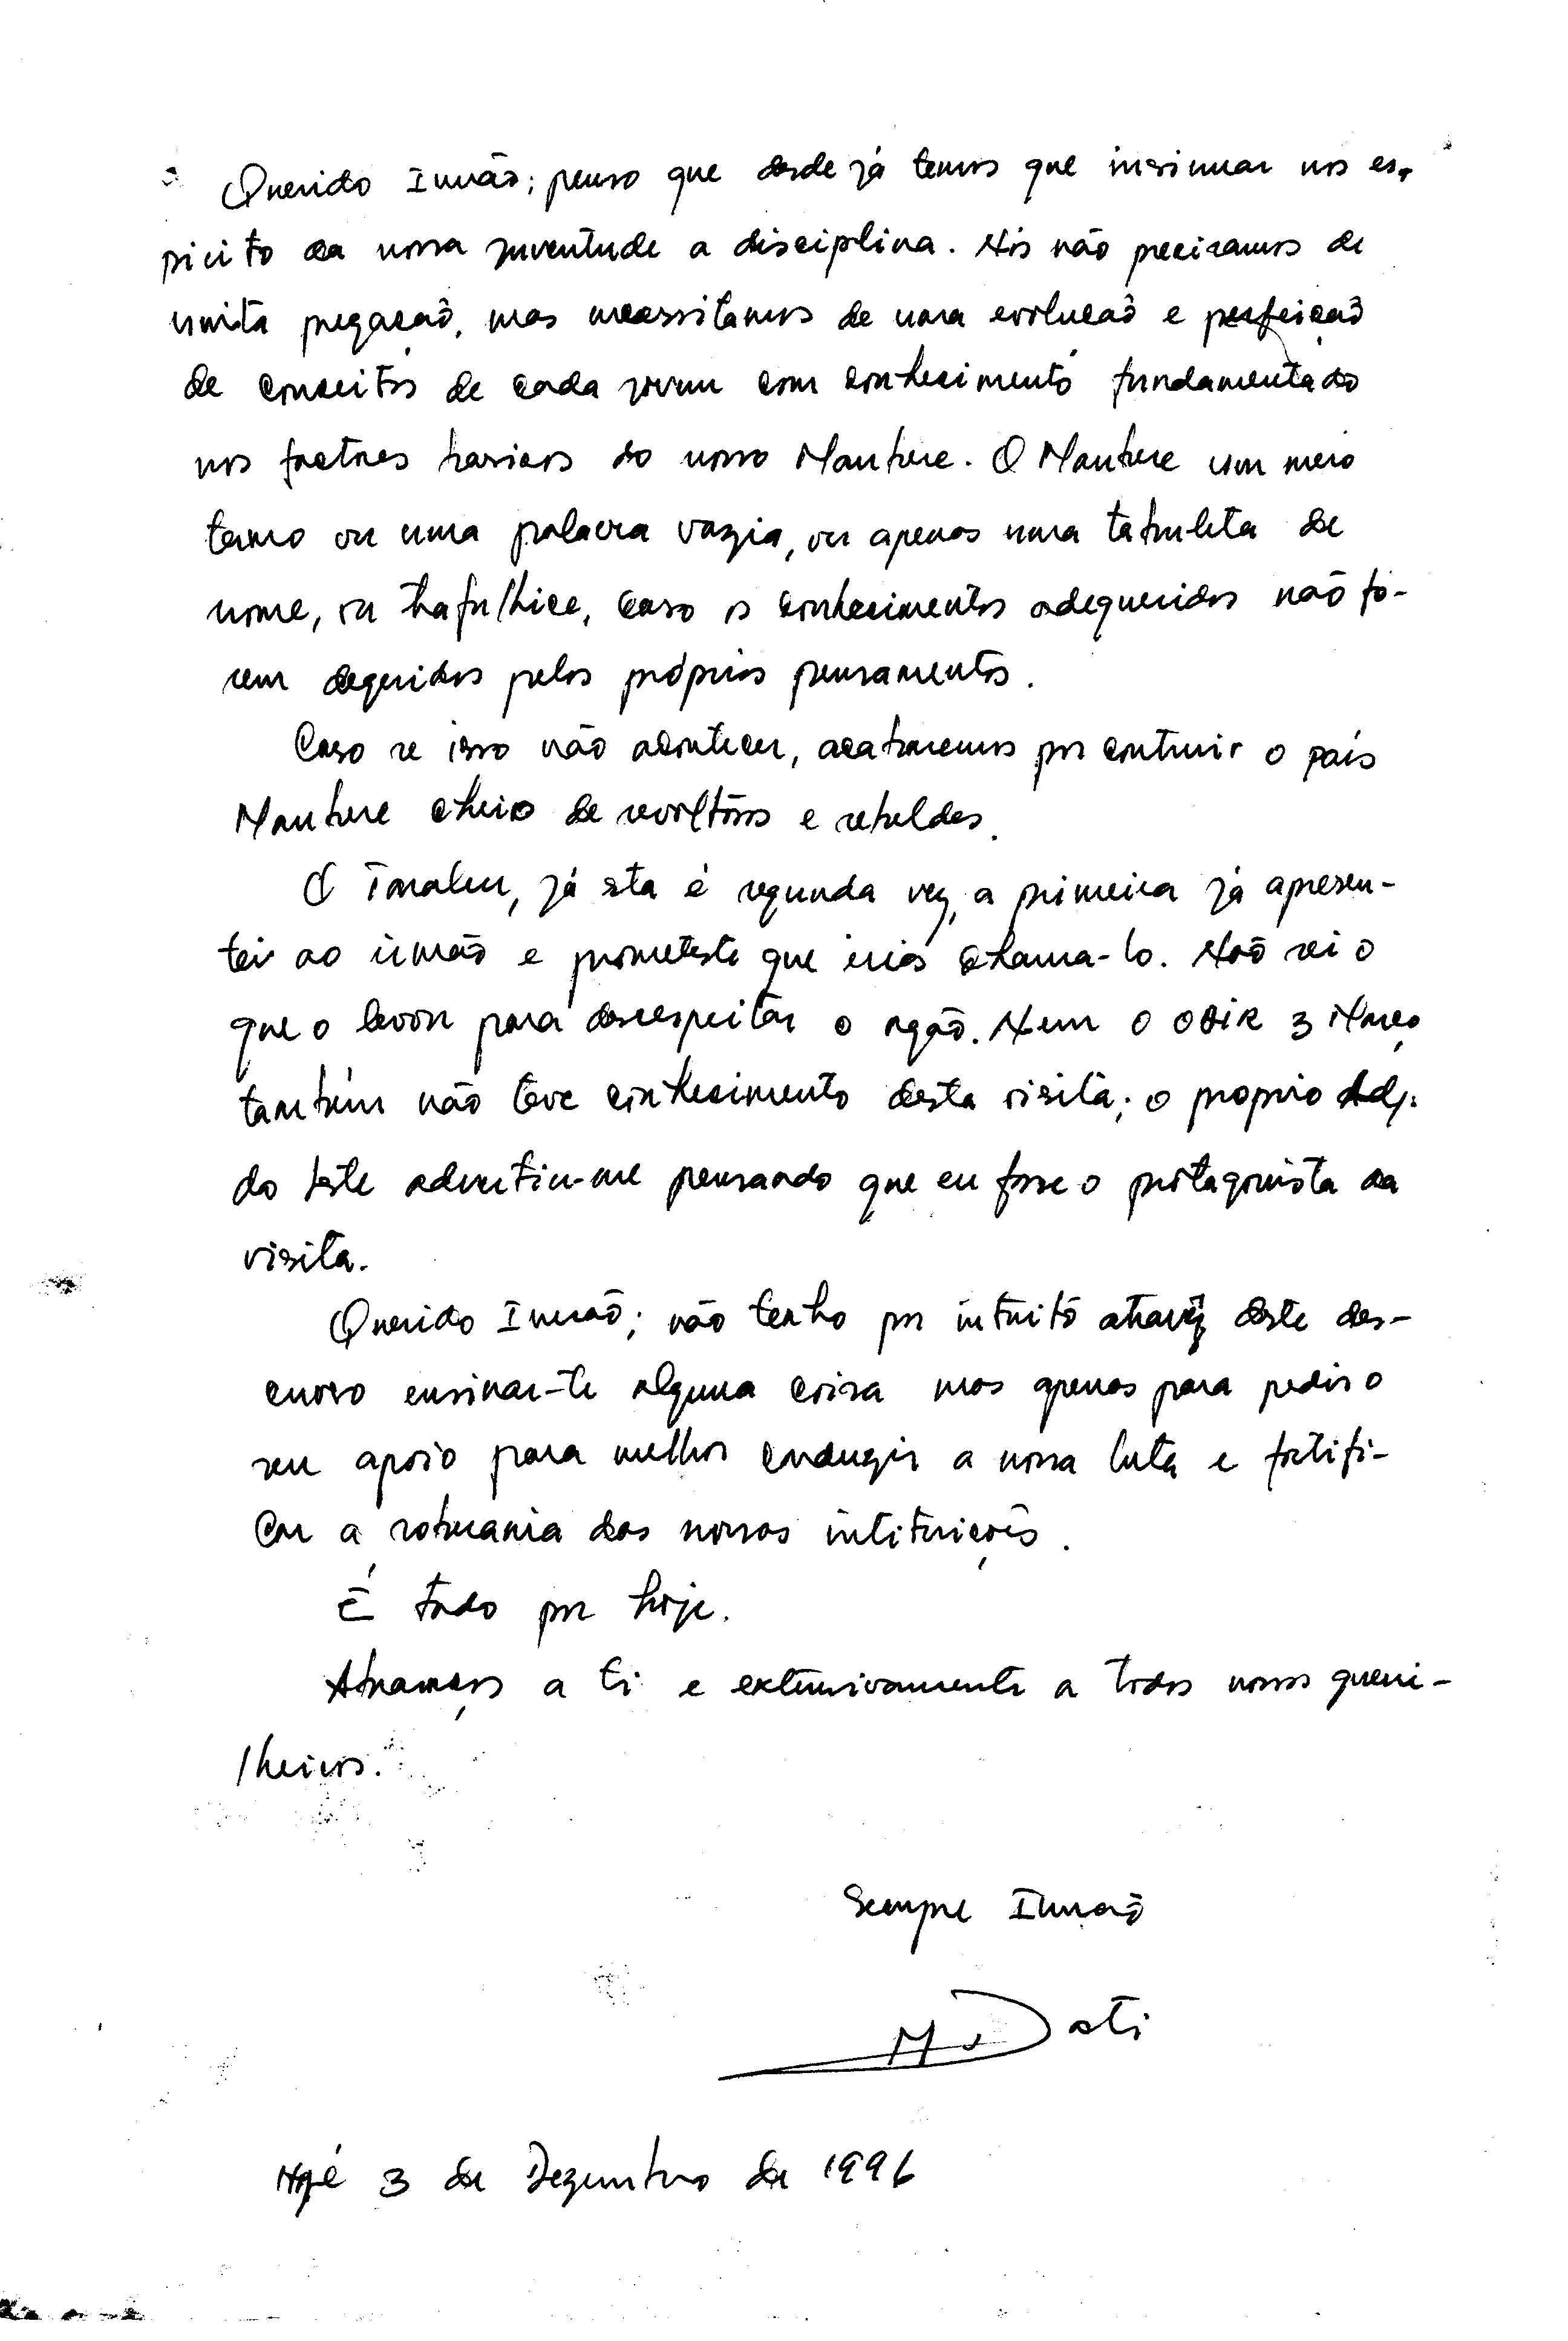 Querido Irmão; penso que desde já temos que insinuar nos es-
pirito da nossa juventude a disciplina. Nós não precisamos de
muita pregação, mas necessitamos de uma evolução e perfeição
de conceitos de cada jovem com conhecimento fundamentado
nos factores basicos do nosso Maubere. O Maubere um mero
termo ou uma palavra vazia, ou apenas uma tabuleta de
nome, ou trafulhice, caso os conhecimentos adequeridos não fo-
rem degeridos pelos próprios pensamentos.
Caso se isso não acontecer, acabaremos por contruir o país
Maubere cheio de revoltosos e rebeldes.
O já esta é segunda vez, a primeira já apresen-
tei ao irmão e prometeste que irias chama-lo. Não sei o
que o levou para desrespeitar o orgão. Nem o ODIR 3 Março
também não teve conhecimento desta visita; o proprio Adj.
do leste advertiu-me pensando que eu fosse o protagonista da
visita.
Querido Irmão; não tenho por intuito através deste des-
curso ensinar-te alguma coisa mas apenas para pedir o
seu apoio para melhor conduzir a nossa luta e fortifi-
car a soberania das nossas intituições.
É tudo por hoje.
Abraços a ti e extensivamente a todos nossos guerri-
lheiros.
Sempre Irmão
Dati
3 de Dezembro de 1996